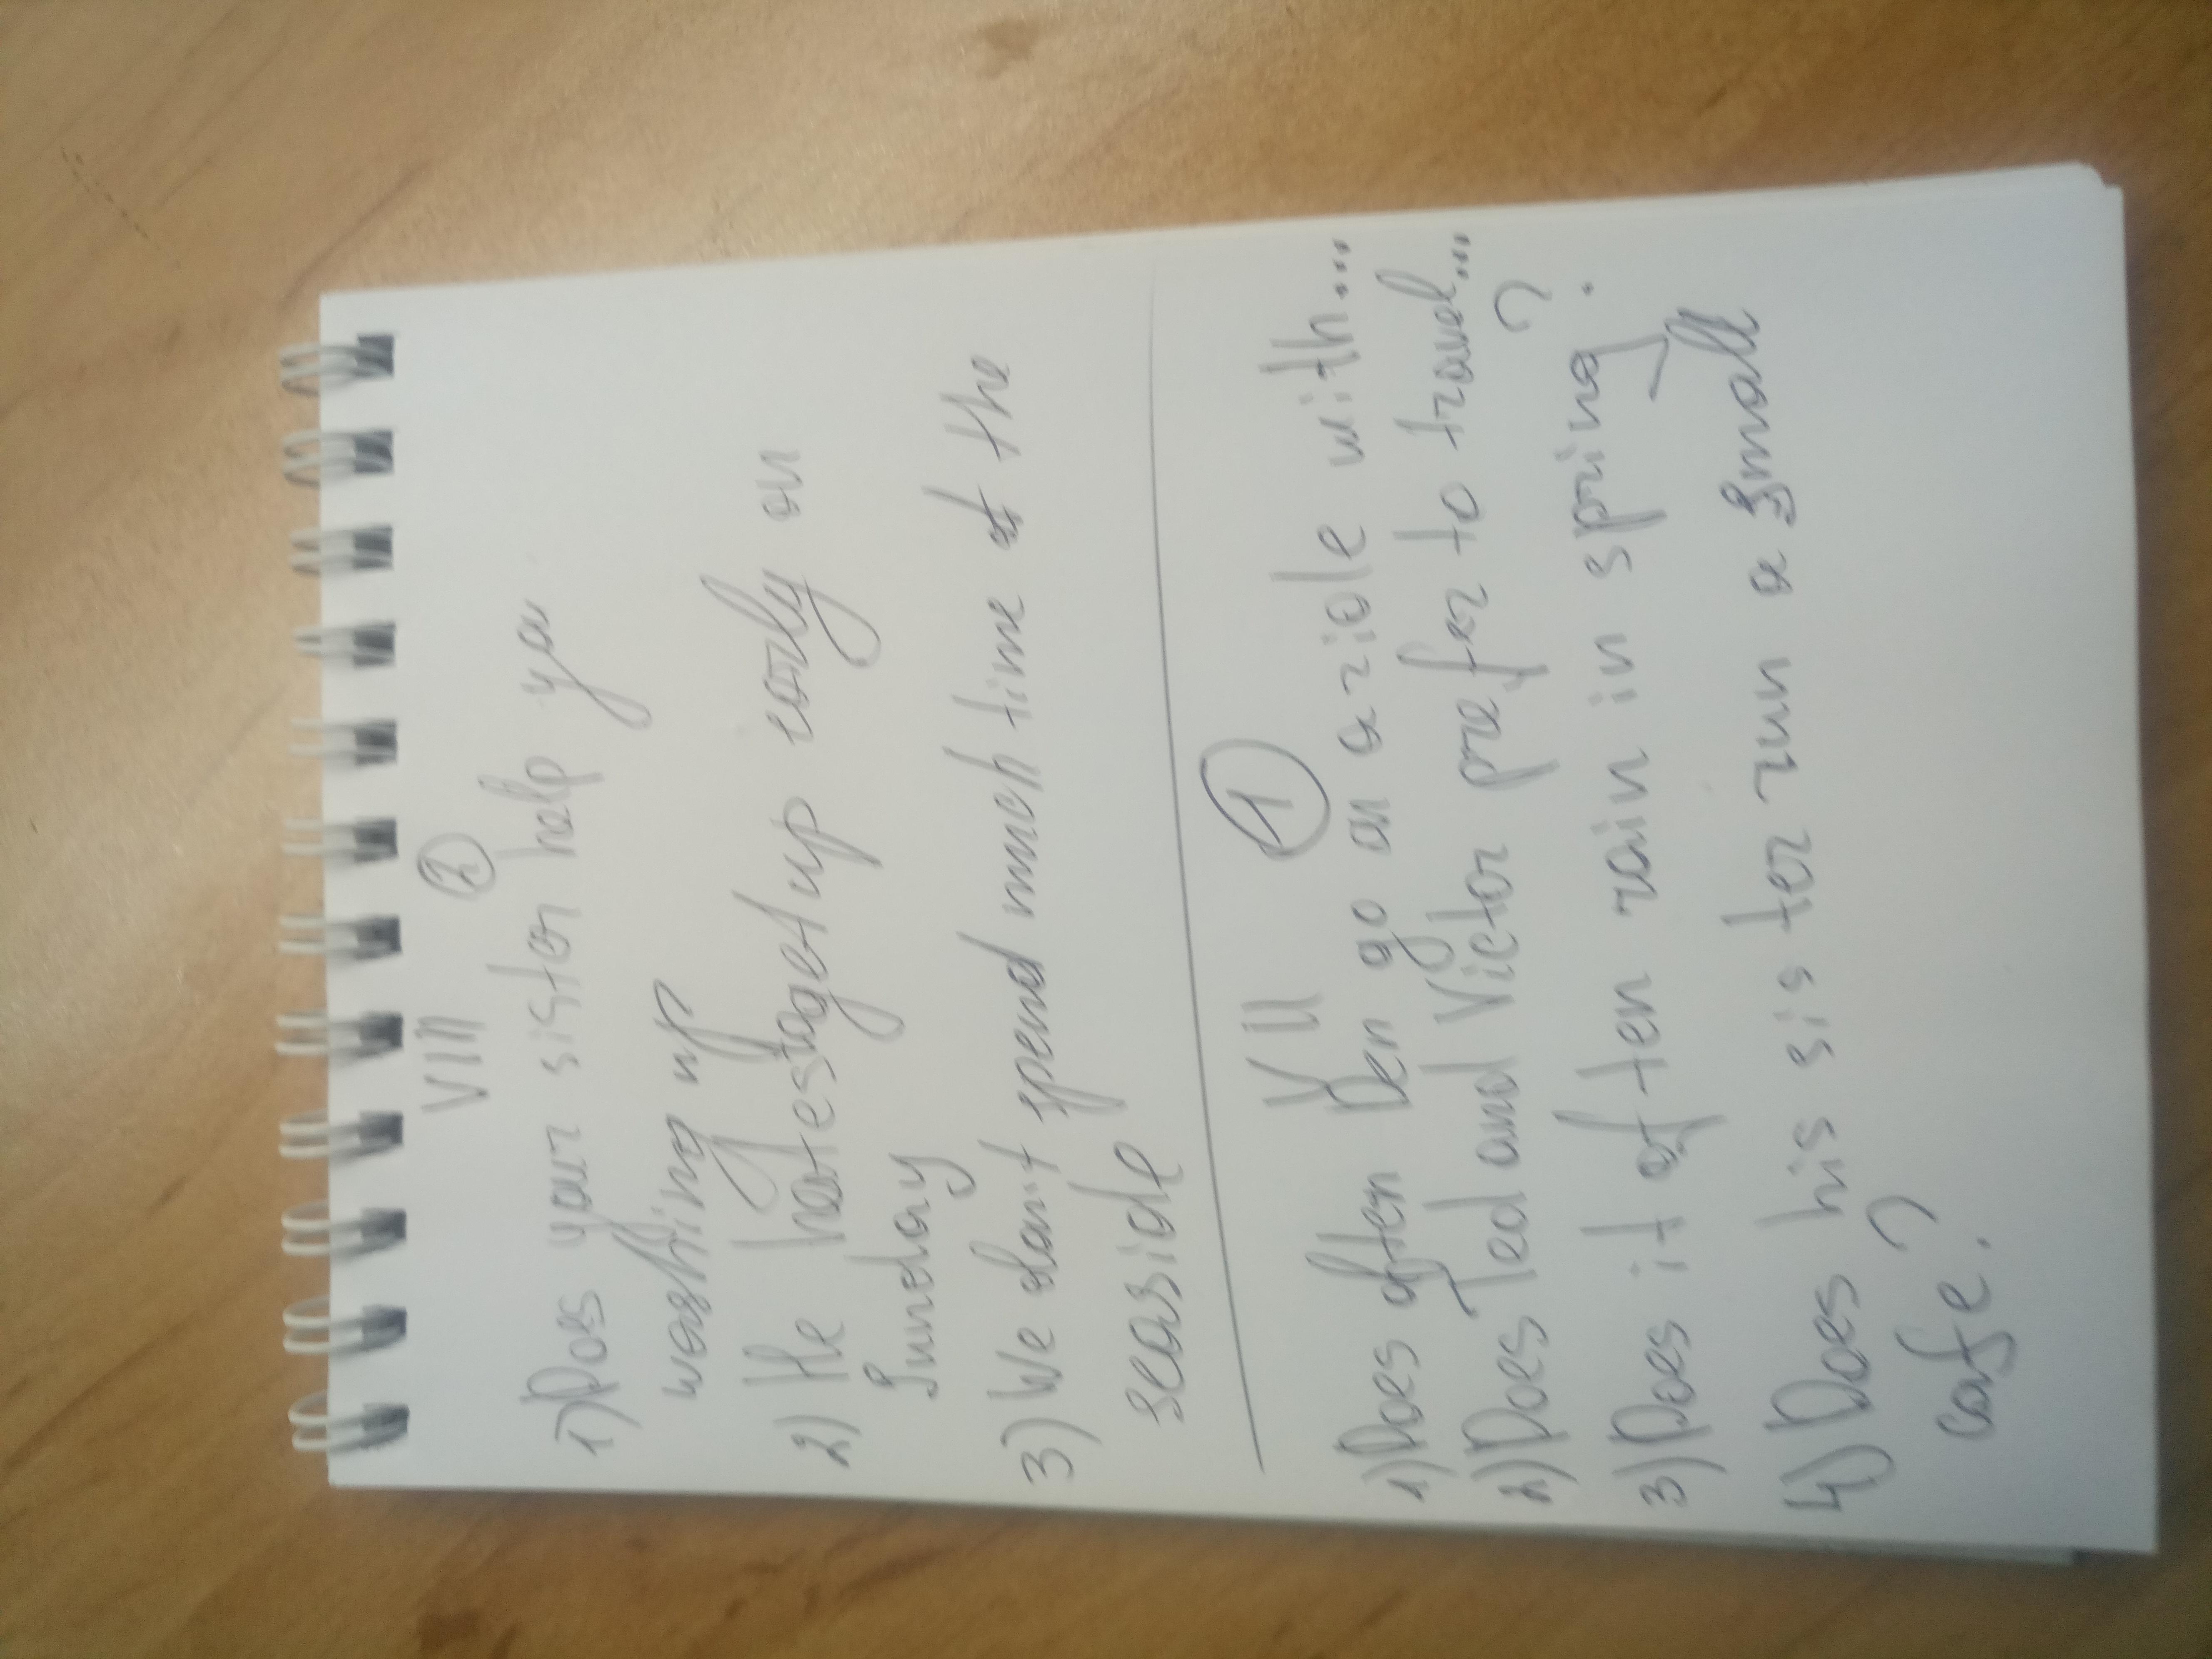 VIII ②
1) Does your sister help you
washing up
2) He hates to get up early on
Sunday
3) We don't spend much time at the
seaside
VII ①
1) Does often Den go on a ride with....
2) Does Ted and Victor prefer to travel...
3) Does it often rain in spring?
4) Does his sister run a small
cafe?